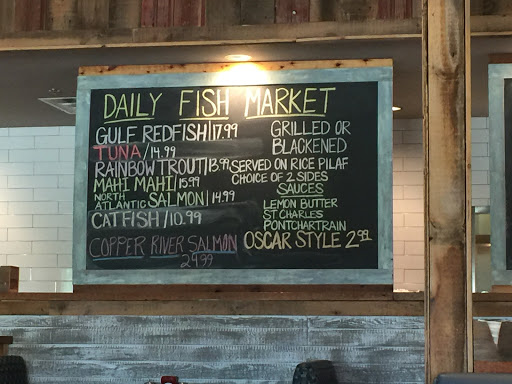 DAILY FISH MARKET
GULF REDFISH|17.99
TUNA/14.99
RAINBOW TROUT|13.99
MAHI MAHI|15.99
NORTH ATLANTIC SALMON|14.99
CATFISH/10.99
COPPER RIVER SALMON
24.99
GRILLED OR
BLACKENED
SERVED ON RICE PILAF
CHOICE OF 2 SIDES
SAUCES
LEMON BUTTER
ST CHARLES
PONTCHARTRAIN
OSCAR STYLE 2.99